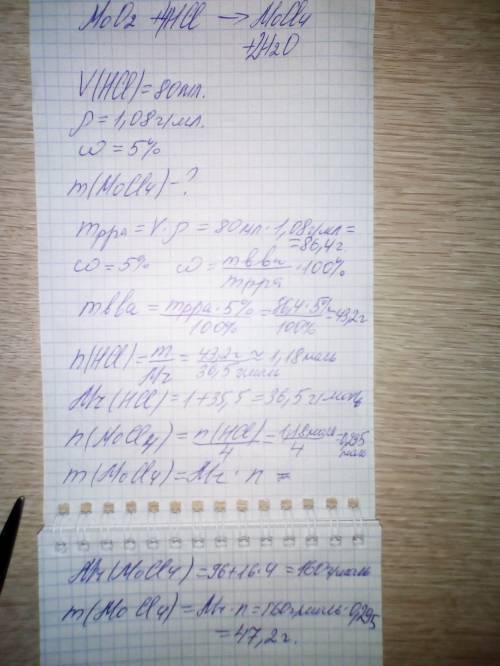 MoO2 + 4HCl → MoCl4
+2H2O
V(HCl) = 80мл.
ρ = 1,08 г/мл.
ω = 5%
m(MoCl4) - ?
mрра = V · ρ = 80мл · 1,08г/мл =
= 86,4г.
ω = 5% ω = mвва/mрра · 100%
mвва = mрра · 5%/100% = 86,4 · 5%/100% = 43,2г
n(HCl) = m/Mr = 43,2г/36,5г/моль ≈ 1,18моль
Mr(HCl) = 1 + 35,5 = 36,5 г/моль
n(MoCl4) = n(HCl)/4 = 1,18моль/4 = 0,295 моль
m(MoCl4) = Mr · n =
Mr(MoCl4) = 96 + 16 · 4 = 160г/моль
m(MoCl4) = Mr · n = 160г/моль · 0,295
= 47,2г.